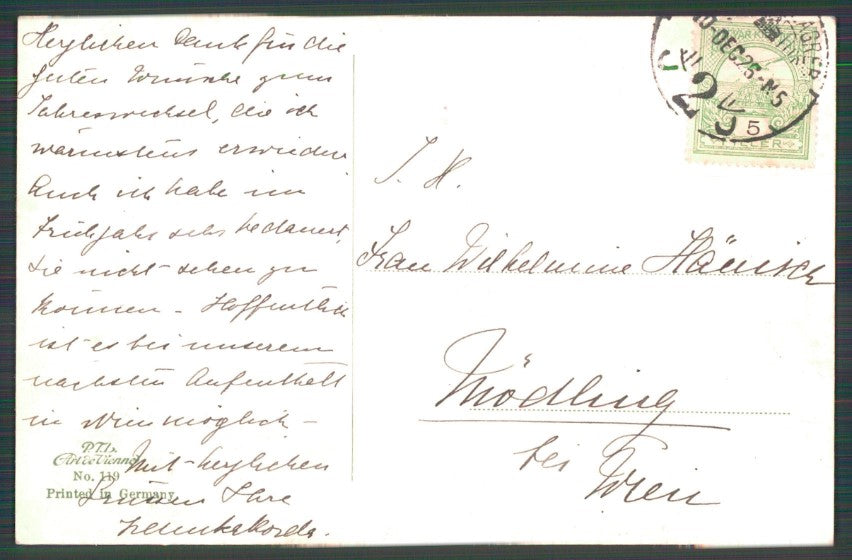 Herzlichen Dank für die
guten Wünsche zum
Jahreswechsel, die ich
wärmstens erwidere
Auch ich habe im
Frühjahr sehr bedauert,
Sie nicht sehen zu
können - Hoffentlich
ist es bei unserem
nächsten Aufenthalt
in Wien möglich -
Mit herzlichen
Grüssen Ihre
P.T.L.
Art de Vienne
No. 119
Printed in Germany
10-DEC 26-N5
2
5
FILLER
I. H.
Frau Wilhelmine Hänisch
Mödling
bei
Wien